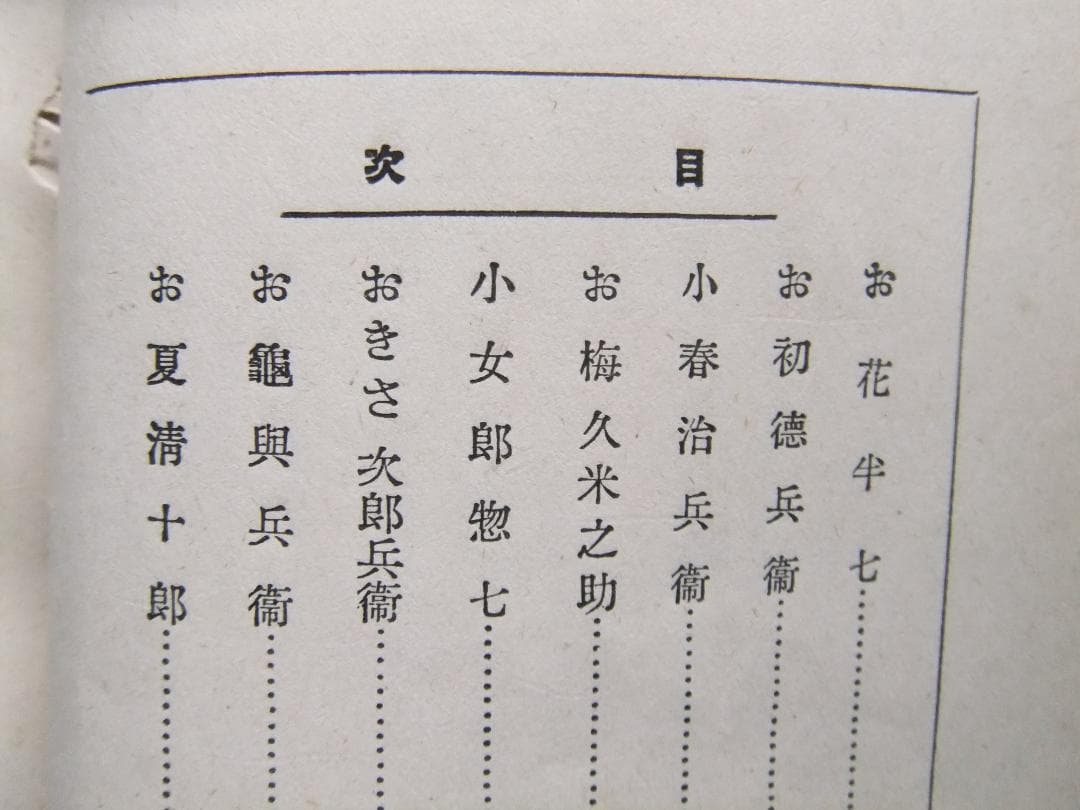 目次
お花半七
お初德兵衞
小春治兵衞
お梅久米之助
小女郎惣七
おきさ次郎兵衞
お龜與兵衞
お夏淸十郎